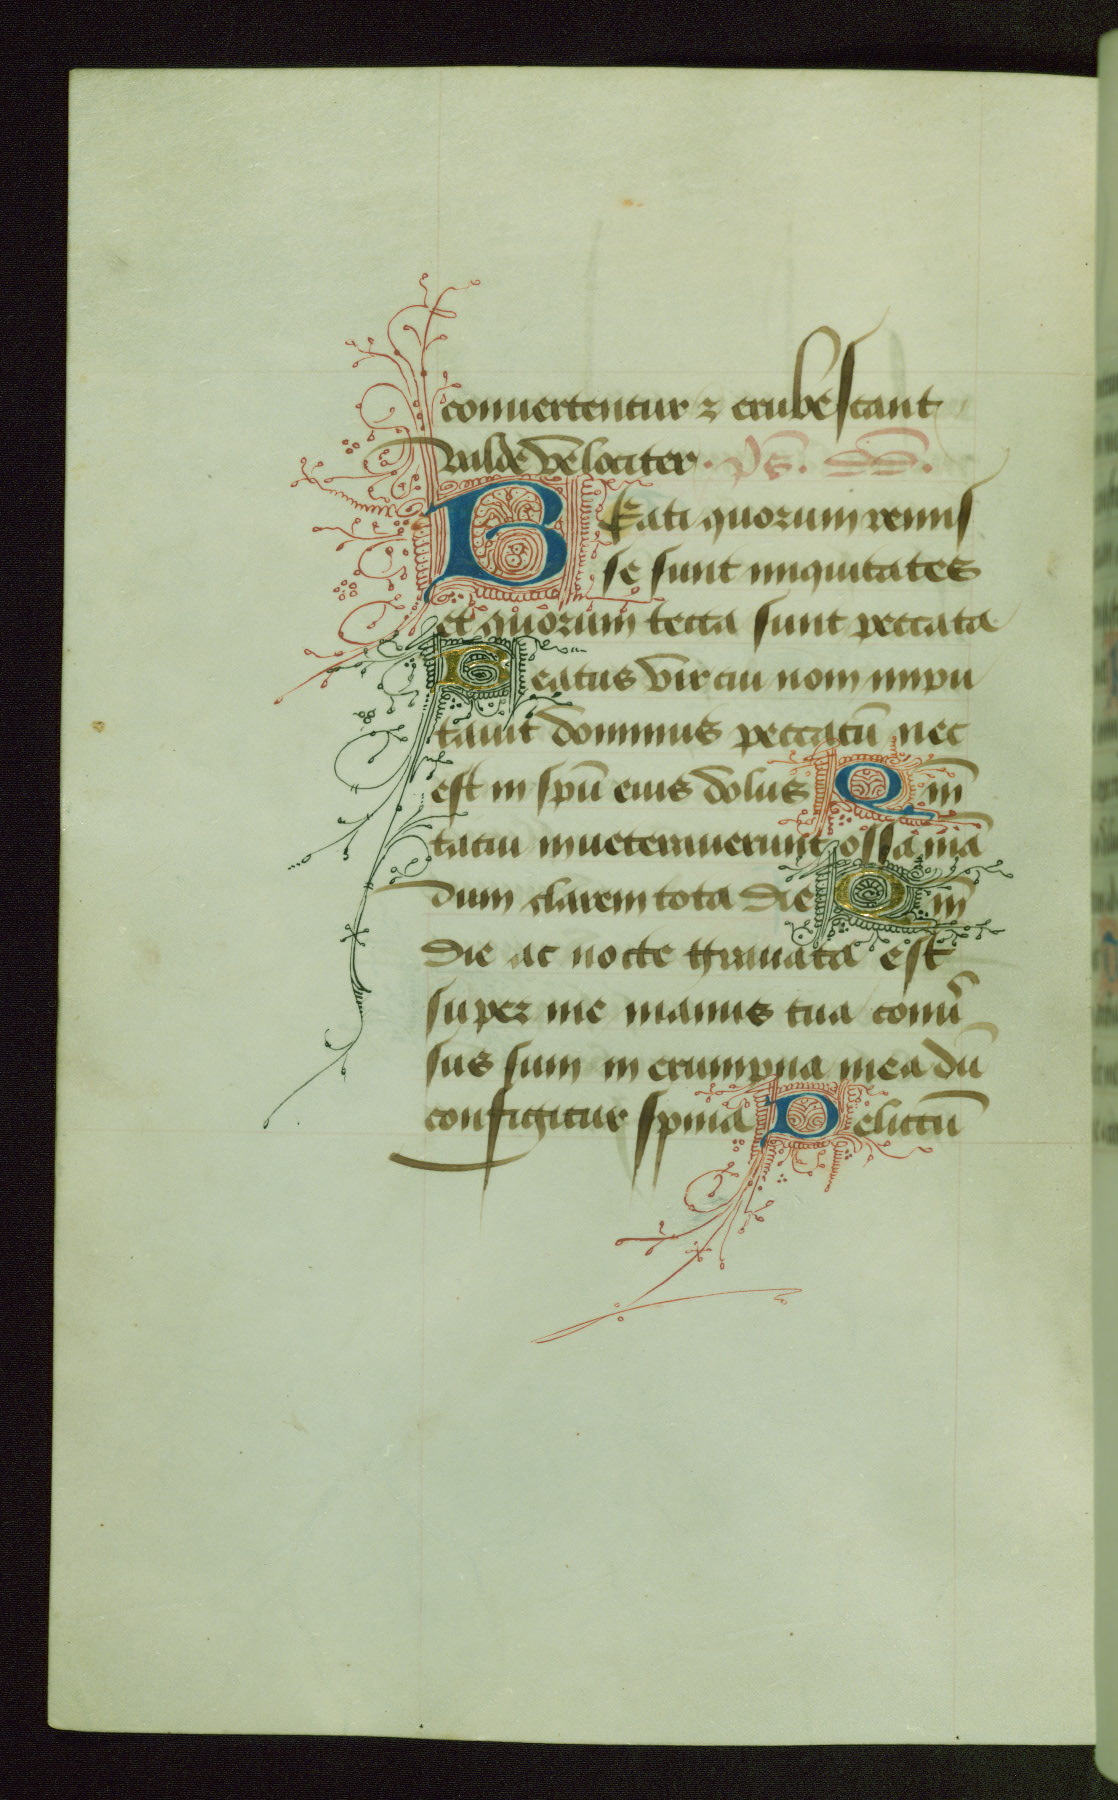 conuertentur ⁊ erubescant
valde velociter. ps̄. dd̄.
Beati quorum remis
se sunt iniquitates
et quorum tecta sunt peccata
Beatus vir cui non inpu
tauit dominus peccatū nec
est in spū eius dolus Qm̄
tacui inueterauerunt ossa mā
dum clarem tota die Qm̄
die ac nocte grauata est
super me manus tua conũ
sus sum in erumpna mea dū
configitur spina Delictū